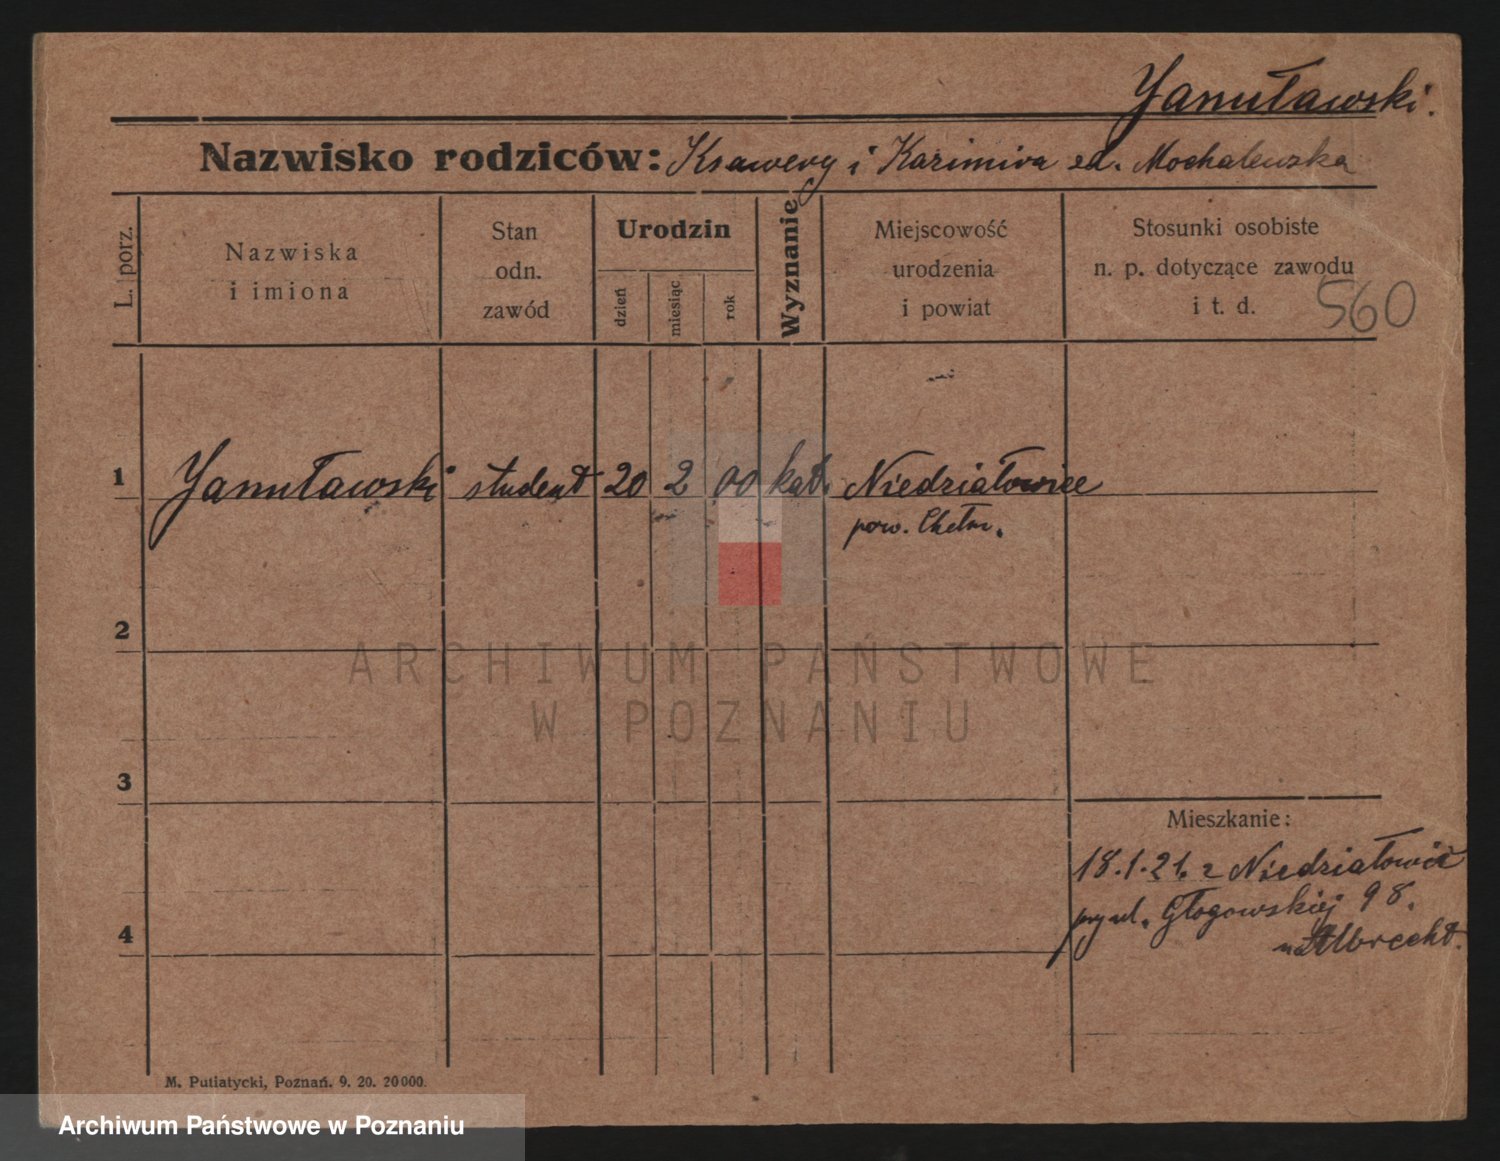 Yanuławski.
Nazwisko rodziców: Ksawery i Kazimira zd. Mochalewska
L. porz.
Nazwiska
i imiona
Stan
odn.
zawód
Urodzin
dzień
miesiąc
rok
Wyznanie
Miejscowość
urodzenia
i powiat
Stosunki osobiste
n. p. dotyczące zawodu
i t. d.
560
1 Yanuławski student 20 2 00 kat. Niedziałowice
pow. Chełm.
2
ARCHIWUM PAŃSTWOWE
W POZNANIU
3
Mieszkanie:
18.1.21. z Niedziałowic
przy ul. Głogowskiej 98.
Albrecht.
4
M. Putiatycki, Poznań. 9. 20. 20000.
Archiwum Państwowe w Poznaniu